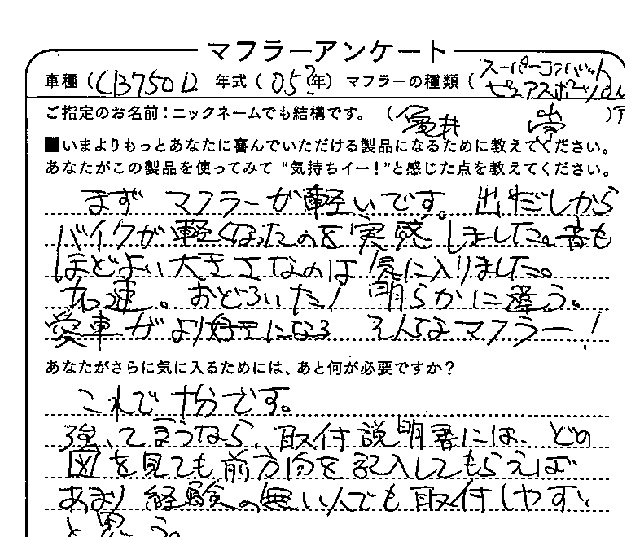 マフラーアンケート
車種（CB750 年式（05年）マフラーの種類（スーパーコンバット
ピュアスポーツ
ご指定のお名前：ニックネームでも結構です。（亀井 崇）
■いまよりもっとあなたに喜んでいただける製品になるために教えてください。
あなたがこの製品を使ってみて“気持ちイー！”と感じた点を教えてください。
まず マフラーが軽いです。出だしから
バイクが軽くなったのを実感しました。音も
ほどよい大きさなのは気に入りました。
加速。おどろいた！明らかに違う。
愛車がより好きになる そんなマフラー！
あなたがさらに気に入るためには、あと何が必要ですか？
これで十分です。
強いて言うなら、取付説明書には、どの
図を見ても前方向を記入してもらえば
あまり経験の無い人でも取付しやすい
と思う。